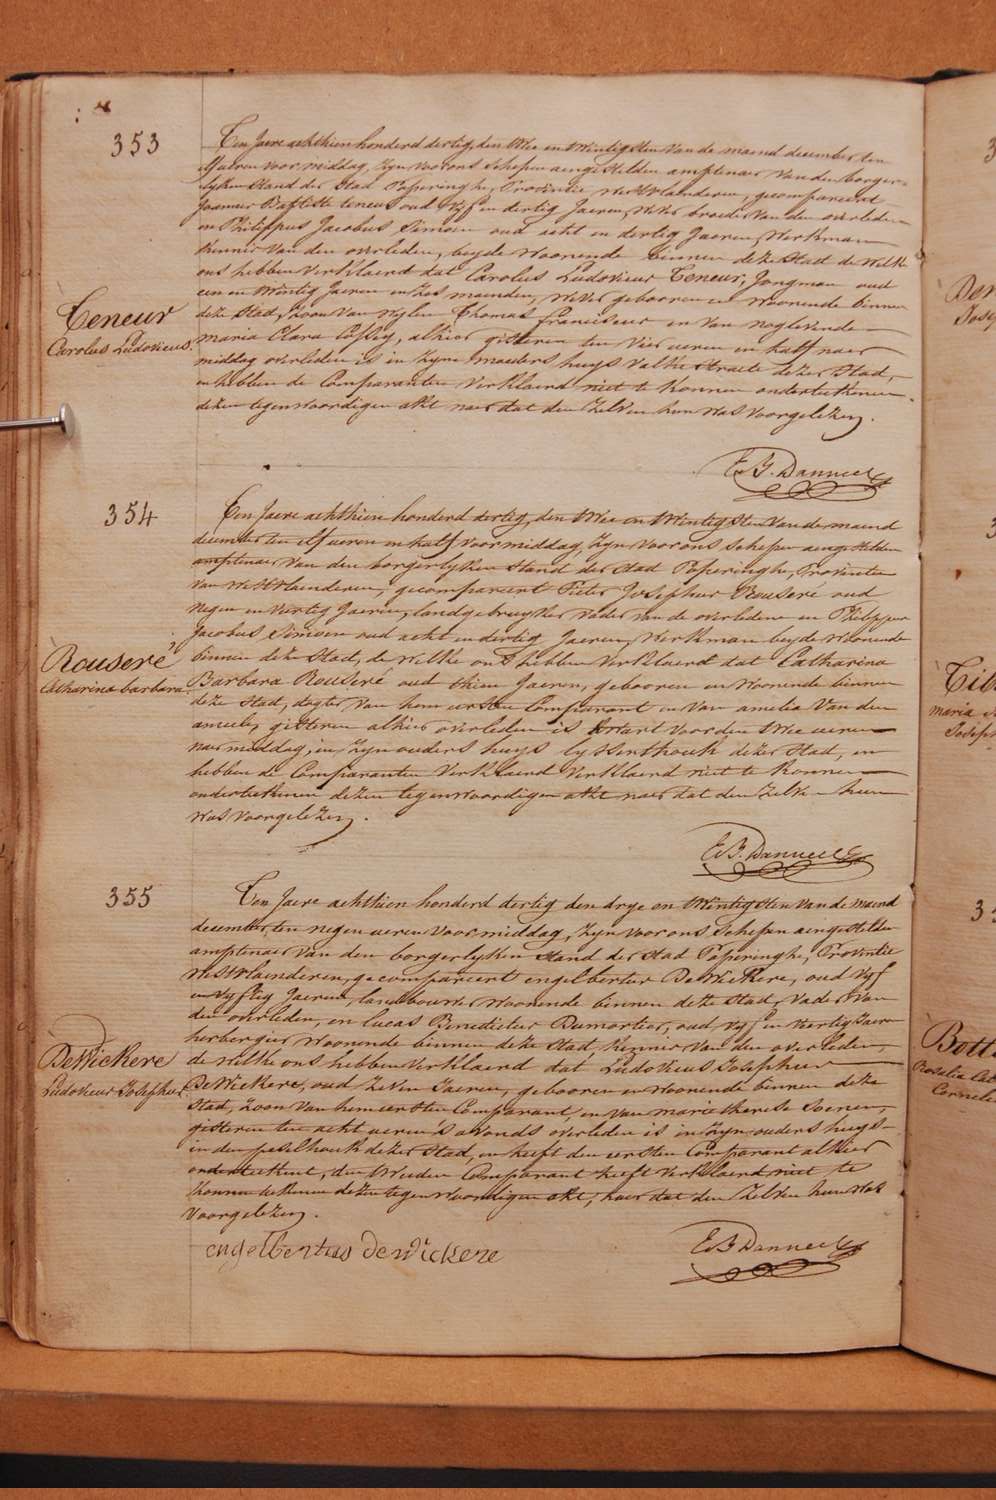 353
Ten Jaere achthien honderd dertig, den twee en twintigsten van de maend december ten
elf ueren voor middag, zyn voor ons schepen aengestelden amptenaer van den borger-
lyken stand der stad Poperinghe, Provintie westvlaenderen, gecompareert
Joannes Baptiste teneur oud vyf en dertig Jaeren, wever broeder van den overleden
en Philippus Jacobus Simoen oud acht en dertig Jaeren, werkman
kennis van den overleden, beyde woonende binnen deze stad de welke
ons hebben verklaerd dat Carolus Ludovicus Teneur, Jongman oud
een en twintig Jaeren en zes maenden, wever gebooren en woonende binnen
deze stad, zoon van wylen Thomas franciscus en van noglevende
maria Clara, alhier gisteren ten vier ueren en half naer
middag overleden is in zyne moeders huys straete dezer stad,
en hebben de Comparanten verklaerd niet te konnen onderteekenen
dezen tegenwoordigen akt naer dat den zelven hun was voorgelezen.
Teneur
Carolus Ludovicus.
E. B. Danneel
354
Ten Jaere achthien honderd dertig, den twee en twintigsten van de maend
december ten elf ueren en half voor middag, zyn voor ons schepen aengestelden
amptenaer van den borgerlyken stand der stad Poperinghe, Provintie
van westvlaenderen, gecompareert Pieter Josephus Rouseré oud
negen en veertig Jaeren, landgebruyker vader van de overledene en Philippus
Jacobus Simoen oud acht en dertig Jaeren, werkman beyde woonende
binnen deze stad, de welke ons hebben verklaerd dat Catharina
Barbara Rouseré oud thien Jaeren, gebooren en woonende binnen
deze stad, dogter van hem eersten Comparant en van amelia van den
ameele, gisteren alhier overleden is kwart voor den twee ueren
naer middag, in zyn ouders huys lyssenthouk dezer stad, en
hebben de Comparanten verklaerd verklaerd niet te konnen
onderteekenen dezen tegenwoordigen akt naer dat den zelven hun
was voorgelezen.
Rouseré
Catharina barbara.
E. B. Danneel
355
Ten Jaere achthien honderd dertig den drye en twintigsten van de maend
december ten negen ueren voor middag, zyn voor ons schepen aengestelden
amptenaer van den borgerlyken stand der stad Poperinghe, Provintie
westvlaenderen, gecompareert engelbertus DeWickere, oud vyf
en vyftig Jaeren, landbouwer woonende binnen deze stad, vader van
den overleden, en lucas Benedictus Dumortier, oud vyf en veertig Jaeren
herbergier woonende binnen deze stad, kennis van den overleden,
de welke ons hebben verklaerd dat Ludovicus Josephus
DeWickere, oud zeven Jaeren, gebooren en woonende binnen deze
stad, zoon van hem eersten Comparant, en van marie therese Soenen,
gisteren ten acht ueren 's avonds overleden is in zyn ouders huys
in den peselhouk dezer stad, en heeft den eersten Comparant alhier
onderteekent, den tweeden Comparant heeft verklaerd niet te
konnen teekenen dezen tegenwoordigen akt, naer dat den zelven hun was
voorgelezen.
DeWickere
Ludovicus Josephus.
engelbertus dewickere
E. B. Danneel